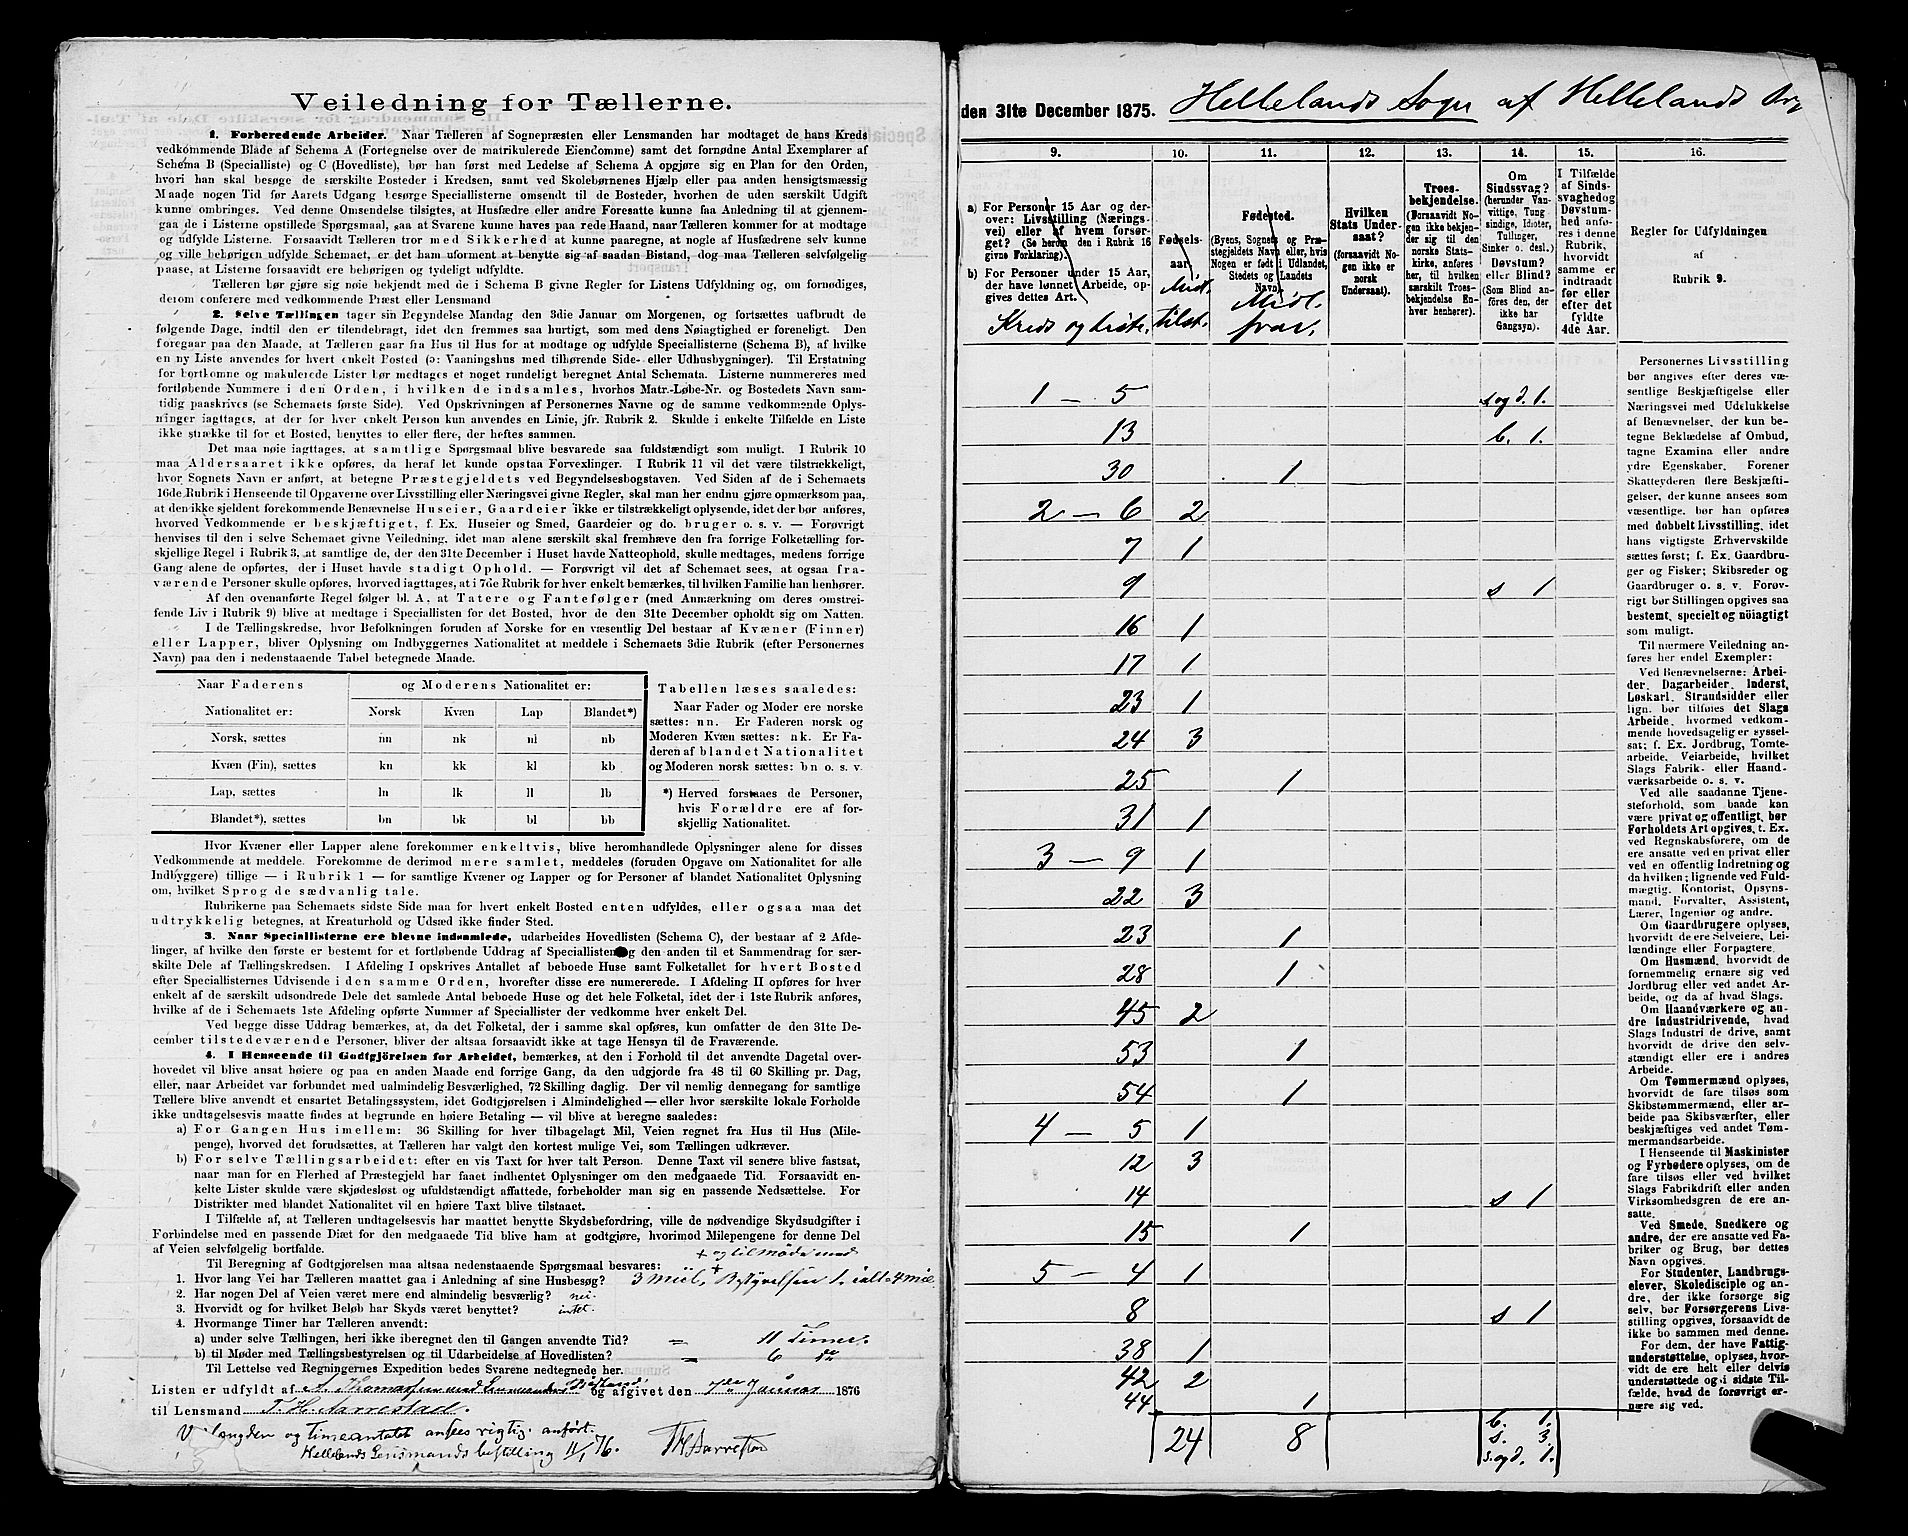 Veiledning for Tællerne.
1. Forberedende Arbeider. Naar Tælleren af Sognepræsten eller Lensmanden har modtaget de hans Kreds
vedkommende Blade af Schema A (Fortegnelse over de matrikulerede Eiendomme) samt det fornødne Antal Exemplarer af
Schema B (Specialliste) og C (Hovedliste), bør han først med Ledelse af Schema A opgjøre sig en Plan for den Orden,
hvori han skal besøge de særskilte Bosteder i Kredsen, samt ved Skolebørnenes Hjælp eller paa anden hensigtsmæssig
Maade nogen Tid før Aarets Udgang besørge Speciallisterne omsendt til de Bosteder, hvorhen de uden særskilt Udgift
kunne ombringes. Ved denne Omsendelse tilsigtes, at Husfædre eller andre Foresatte kunne faa Anledning til at gjennem-
gaa de i Listerne opstillede Spørgsmaal, saa at Svarene kunne haves paa rede Haand, naar Tælleren kommer for at modtage
og udfylde Listerne. Forsaavidt Tælleren tror med Sikkerhed at kunne paaregne, at nogle af Husfædrene selv kunne
og ville behørigen udfylde Schemaet, er det ham uforment at benytte sig af saadan Bistand, dog maa Tælleren selvfølgelig
paase, at Listerne forsaavidt ere behørigen og tydeligt udfyldte.
Tælleren bør gjøre sig nøie bekjendt med de i Schema B givne Regler for Listens Udfyldning og, om fornødiges,
derom conferere med vedkommende Præst eller Lensmand
2. Selve Tællingen tager sin Begyndelse Mandag den 3die Januar om Morgenen, og fortsættes uafbrudt de
følgende Dage, indtil den er tilendebragt, idet den fremmes saa hurtigt, som med dens Nøiagtighed er foreneligt. Den
foregaar paa den Maade, at Tælleren gaar fra Hus til Hus for at modtage og udfylde Speciallisterne (Schema B), af hvilke
en ny Liste anvendes for hvert enkelt Bosted (ɔ: Vaaningshus med tilhørende Side- eller Udhusbygninger). Til Erstatning
for bortkomne og makulerede Lister bør medtages et noget rundeligt beregnet Antal Schemata. Listerne nummereres med
fortløbende Nummere i den Orden, i hvilken de indsamles, hvorhos Matr.-Løbe-Nr. og Bostedets Navn sam-
tidig paaskrives (se Schemaets første Side). Ved Opskrivningen af Personernes Navne og de samme vedkommende Oplys-
ninger iagttages, at der for hver enkelt Person kun anvendes en Linie, jfr. Rubrik 2. Skulde i enkelte Tilfælde en Liste
ikke strække til for et Bosted, benyttes to eller flere, der heftes sammen.
Det maa nøie iagttages, at samtlige Spørgsmaal blive besvarede saa fuldstændigt som muligt. I Rubrik 10
maa Aldersaaret ikke opføres, da heraf let kunde opstaa Forvexlinger. I Rubrik 11 vil det være tilstrækkeligt,
hvor Sognets Navn er anført, at betegne Præstegjeldets ved Begyndelsesbogstaven. Ved Siden af de i Schemaets
16de Rubrik i Henseende til Opgaverne over Livsstilling eller Næringsvei givne Regler, skal man her endnu gjøre opmærksom paa,
at den ikke sjeldent forekommende Benævnelse Huseier, Gaardeier ikke er tilstrækkeligt oplysende, idet der bør anføres,
hvorved Vedkommende er beskjæftiget, f. Ex. Huseier og Smed, Gaardeier og do. bruger o. s. v. — Forøvrigt
henvises til den i selve Schemaet givne Veiledning, idet man alene særskilt skal fremhæve den fra forrige Folketælling for-
skjellige Regel i Rubrik 3, at samtlige de, der den 31te December i Huset havde Natteophold, skulle medtages, medens forrige
Gang alene de opførtes, der i Huset havde stadigt Ophold. — Forøvrigt vil det af Schemaet sees, at ogsaa fra-
værende Personer skulle opføres, hvorved iagttages, at i 7de Rubrik for hver enkelt bemærkes, til hvilken Familie han henhører.
Af den ovenanførte Regel følger bl. A, at Tatere og Fantefølger (med Anmærkning om deres omstrei-
fende Liv i Rubrik 9) blive at medtage i Speciallisten for det Bosted, hvor de den 31te December opholdt sig om Natten.
I de Tællingskredse, hvor Befolkningen foruden af Norske for en væsentlig Del bestaar af Kvæner (Finner)
eller Lapper, bliver Oplysning om Indbyggernes Nationalitet at meddele i Schemaets 3die Rubrik (efter Personernes
Navn) paa den i nedenstaaende Tabel betegnede Maade.
Naar Faderens
Nationalitet er:
og Moderens Nationalitet er:
Norsk Kvæn Lap Blandet*)
Norsk, sættes nn nk nl nb
Kvæn (Fin), sættes kn kk kl kb
Lap, sættes ln lk ll lb
Blandet*), sættes bn bk bl bb
Tabellen læses saaledes:
Naar Fader og Moder ere norske
sættes: nn. Er Faderen norsk og
Moderen Kvæn sættes: nk. Er Fa-
deren af blandet Nationalitet
og Moderen norsk sættes: bn o. s. v.
*) Herved forstaaes de Personer,
hvis Forældre ere af for-
skjellig Nationalitet.
Hvor Kvæner eller Lapper alene forekommer enkeltvis, blive heromhandlede Oplysninger alene for disses
Vedkommende at meddele. Forekomme de derimod mere samlet, meddeles (foruden Opgave om Nationalitet for alle
Indbyggere) tillige — i Rubrik 1 — for samtlige Kvæner og Lapper og for Personer af blandet Nationalitet Oplysning
om, hvilket Sprog de sædvanlig tale.
Rubrikerne paa Schemaets sidste Side maa for hvert enkelt Bosted enten udfyldes, eller ogsaa maa det
udtrykkelig betegnes, at Kreaturhold og Udsæd ikke finder Sted.
3. Naar Speciallisterne ere blevne indsamlede, udarbeides Hovedlisten (Schema C), der bestaar af 2 Afde-
linger, af hvilke den første er bestemt for et fortløbende Uddrag af Speciallisten og den anden til et Sammendrag for sær-
skilte Dele af Tællingskredsen. I Afdeling I opskrives Antallet af beboede Huse samt Folketallet for hvert Bosted
efter Speciallisternes Udvisende i den samme Orden, hvorefter disse ere numererede. I Afdeling II opføres for hver
enkelt af de særskilt udsondrede Dele det samlede Antal beboede Huse og det hele Folketal, idet der i 1ste Rubrik anføres,
hvilke af de i Schemaets 1ste Afdeling opførte Nummer af Speciallister der vedkomme hver enkelt Del.
Ved begge disse Uddrag bemærkes, at, da det Folketal, der i samme skal opføres, kun omfatter de den 31te De-
cember tilstedeværende Personer, bliver der altsaa forsaavidt ikke at tage Hensyn til de Fraværende.
4. I Henseende til Godtgjörelsen for Arbeidet, bemærkes, at den i Forhold til det anvendte Dagetal over-
hovedet vil blive ansat høiere og paa en anden Maade end forrige Gang, da den udgjorde fra 48 til 60 Skilling pr. Dag,
eller, naar Arbeidet var forbundet med ualmindelig Besværlighed, 72 Skilling daglig. Der vil nemlig dennegang for samtlige
Tællere blive anvendt et ensartet Betalingssystem, idet Godtgjørelsen i Almindelighed — eller hvor særskilte lokale Forholde
ikke undtagelsesvis maatte findes at begrunde en høiere Betaling — vil blive at beregne saaledes:
a) For Gangen Hus imellem: 36 Skilling for hver tilbagelagt Mil, Veien regnet fra Hus til Hus (Mile-
penge), hvorved det forudsættes, at Tælleren har valgt den kortest mulige Vei, som Tællingen udkræver.
b) For selve Tællingsarbeidet: efter en vis Taxt for hver talt Person. Denne Taxt vil senere blive fastsat,
naar man for en Flerhed af Præstegjeld har faaet indhentet Oplysninger om den medgaaede Tid. Forsaavidt en-
kelte Lister skulde være skjødesløst og ufuldstændigt affattede, forbeholder man sig en passende Nedsættelse. For
Distrikter med blandet Nationalitet vil en høiere Taxt blive tilstaaet.
I Tilfælde af, at Tælleren undtagelsesvis har maattet benytte Skydsbefordring, ville de nødvendige Skydsudgifter i
Forbindelse med en passende Diæt for den medgaaede Tid blive ham at godtgjøre, hvorimod Milepengene for denne Del
af Veien selvfølgelig bortfalde.
+ og til Möde med
Til Beregning af Godtgjørelsen maa altsaa nedenstaaende Spørgsmaal besvares:
1. Hvor lang Vei har Tælleren maattet gaa i Anledning af sine Husbesøg? 3 Miil, + Bestyrelsen 1. ialt 4 Mil
2. Har nogen Del af Veien været mere end almindelig besværlig? nei.
3. Hvorvidt og for hvilket Beløb har Skyds været benyttet? intet.
4. Hvormange Timer har Tælleren anvendt:
a) under selve Tællingen, heri ikke iberegnet den til Gangen anvendte Tid? = 11 Timer.
b) til Møder med Tællingsbestyrelsen og til Udarbeidelse af Hovedlisten? = 6 do
Til Lettelse ved Regningernes Expedition bedes Svarene nedtegnede her.
Listen er udfyldt af A. Thomassen med Lensmandens Bistand, og afgivet den 7de Januar 1876
til Lensmand T. H. Aarrestad.
Veilængden og Timeantalet ansees rigtig anført.
Hellelands Lensmandsbestilling 11/1 76. TH Aarrestad
den 31te December 1875. Hellelands Sogn af Hellelands Prg
9. 10. 11. 12. 13. 14. 15. 16.
a) For Personer 15 Aar og der-
over: Livsstilling (Nærings-
vei) eller af hvem forsør-
get? (Se herom den i Rubrik 16
givne Forklaring).
b) For Personer under 15 Aar,
der have lønnet Arbeide, op-
gives dettes Art.
Kreds og Liste.
Fødsels-
aar.
Midl.
tilst.
Fødested.
(Byens, Sognets og Præ-
stegjeldets Navn eller, hvis
Nogen er født i Udlandet,
Stedets og Landets
Navn.)
Midl.
frav.
Hvilken
Stats Under-
saat?
(forsaavidt No-
gen ikke er
norsk
Undersaat).
Troes-
bekjendelse.
(Forsaavidt No-
gen ikke bekjen-
der sig til den
norske Stats-
kirke, anføres
her, til hvilken
særskilt Troes-
bekjendelse En-
hver henhører).
Om
Sindssvag?
(herunder Van-
vittige, Tung
sindige, Idioter,
Tullinger,
Sinker o. desl.)
Døvstum?
eller Blind?
(Som Blind an-
føres den, der
ikke har
Gangsyn).
I Tilfælde
af Sinds-
svaghed og
Døvstum-
hed anfø-
res i denne
Rubrik,
hvorvidt
samme er
indtraadt
før eller
efter det
fyldte
4de Aar.
Regler for Udfyldningen
af
Rubrik 9.
1 — 5 s og d. 1.
13 b. 1.
30 1
2 — 6 2
7 1
9 s 1
16 1
17 1
23 1
24 3
25 1
31 1
3 — 9 1
22 3
23 1
28 1
45 2
53 1
54 1
4 — 5 1
12 3
14 s 1
15 1
5 — 4 1
8 s 1
38 1
42 2
44 1
24 8
b. 1.
s. 3.
s. og d. 1.
Personernes Livsstilling
bør angives efter deres væ-
sentlige Beskjæftigelse eller
Næringsvei med Udelukkelse
af Benævnelser, der kun be-
tegne Beklædelse af Ombud,
tagne Examina eller andre
ydre Egenskaber. Forener
Skatteyderen flere Beskjæfti-
gelser, der kunne ansees som
væsentlige, bør han opføres
med dobbelt Livsstilling, idet
hans vigtigste Erhvervskilde
sættes først; f. Ex. Gaardbru-
ger og Fisker; Skibsreder og
Gaardbruger o. s. v. Forøv-
rigt bør Stillingen opgives saa
bestemt, specielt og nöiagtigt
som muligt.
Til nærmere Veiledning an-
føres her endel Exempler:
Ved Benævnelserne: Arbei-
der, Dagarbeider, Inderst,
Løskarl, Strandsidder eller
lign. bør tilføies det Slags
Arbeide, hvormed vedkom-
mende hovedsagelig er syssel-
sat; f. Ex. Jordbrug, Tomte-
arbeide, Veiarbeide, hvilket
Slags Fabrik- eller Haand-
værksarbeide o. s. v.
Ved alle saadanne Tjene-
steforhold, som baade kan
være privat og offentligt, bør
Forholdets Art opgives, t. Ex.
ved Regnskabsførere, om de
ere ansatte ved en privat eller
ved en offentlig Indretning og
da hvilken; lignende ved Fuld-
mægtig, Kontorist, Opsyns-
mand, Forvalter, Assistent,
Lærer, Ingeniør og andre.
Om Gaardbrugere oplyses,
hvorvidt de ere Selveiere, Lei-
lændinge eller Forpagtere.
Om Husmænd, hvorvidt de
fornemmelig ernære sig ved
Jordbrug eller ved andet Ar-
beide, og da af hvad Slags.
Om Haandværkere og an-
dre Industridrivende, hvad
Slags Industri de drive, samt
hvorvidt de drive den selv-
stændigt eller ere i andres
Arbeide.
Om Tømmermænd oplyses,
hvorvidt de fare tilsøs som
Skibstømmermænd, eller ar-
beide paa Skibsværfter, eller
beskjæftiges ved andet Tøm-
mermandsarbeide.
I Henseende til Maskinister
og Fyrbødere oplyses, om de
fare tilsøs eller ved hvilket
Slags Fabrikdrift eller anden
Virksomhedsgren de ere an-
satte.
Ved Smede, Snedkere og
andre, der ere ansatte ved Fa-
briker og Brug, bør dettes
Navn opgives.
For Studenter, Landbrugs-
elever, Skoledisciple og an-
dre, der ikke forsørge sig
selv, bør Forsørgerens Livs-
stilling opgives, forsaavidt de
ikke bo sammen med denne.
For dem, der have Fattig-
understøttelse, oplyses, hvor-
vidt de ere helt eller delvis
understøttede og i sidste Til-
fælde, hvad de forøvrigt er-
nære sig ved.